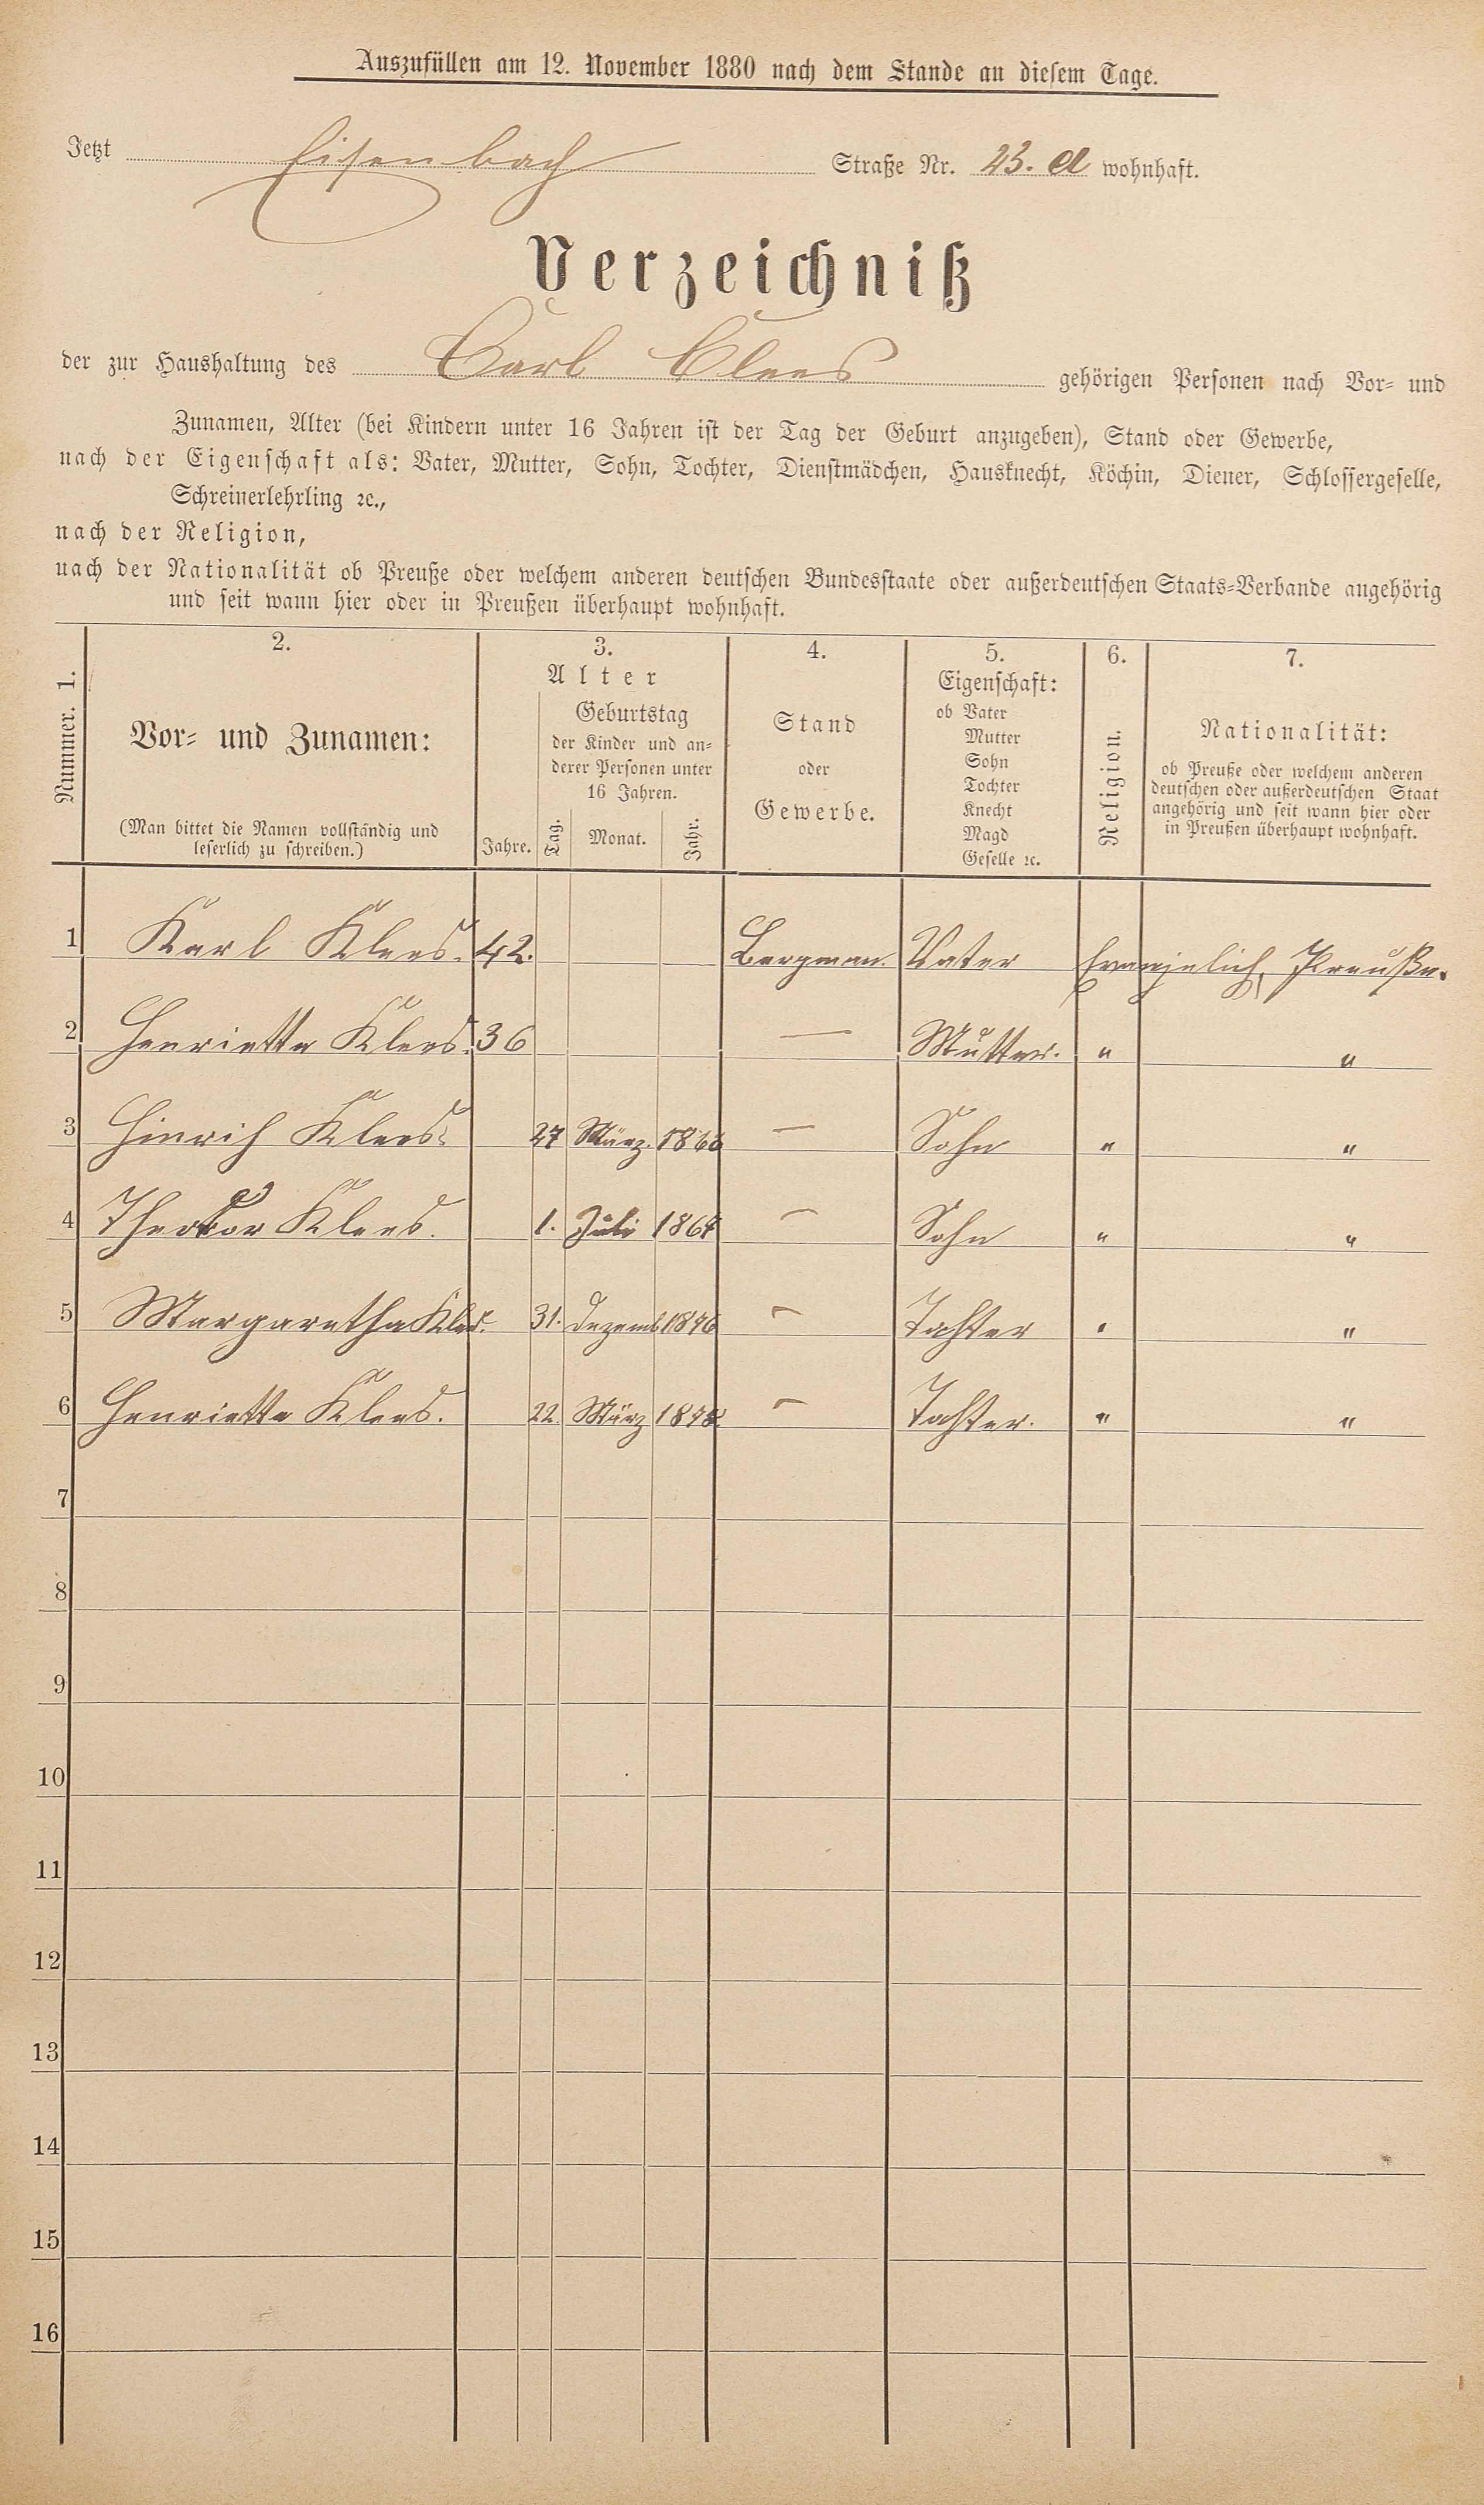 Auszufüllen am 12. November 1880 nach dem Stande an diesem Tage.
Jetzt Eisenbach Straße Nr. 23. a wohnhaft.
Verzeichniß
der zur Haushaltung des Carl Clees gehörigen Personen nach Vor- und
Zunamen, Alter (bei Kindern unter 16 Jahren ist der Tag der Geburt anzugeben), Stand oder Gewerbe,
nach der Eigenschaft als: Vater, Mutter, Sohn, Tochter, Dienstmädchen, Hausknecht, Köchin, Diener, Schlossergeselle,
Schreinerlehrling ꝛc.,
nach der Religion,
nach der Nationalität ob Preuße oder welchem anderen deutschen Bundesstaate oder außerdeutschen Staats-Verbande angehörig
und seit wann hier oder in Preußen überhaupt wohnhaft.
Nummer. 1.
2.
Vor- und Zunamen:
(Man bittet die Namen vollständig und
leserlich zu schreiben.)
3.
Alter
Jahre.
Geburtstag
der Kinder und an-
derer Personen unter
16 Jahren.
Tag. Monat. Jahr.
4.
Stand
oder
Gewerbe.
5.
Eigenschaft:
ob Vater
Mutter
Sohn
Tochter
Knecht
Magd
Geselle ꝛc.
6.
Religion.
7.
Nationalität:
ob Preuße oder welchem anderen
deutschen oder außerdeutschen Staat
angehörig und seit wann hier oder
in Preußen überhaupt wohnhaft.
1 Karl Klees. 42. Bergman. Vater Evangelich, Preuße.
2 Henriette Klees. 36 — Mutter. " "
3 Hinrich Klees. 27 März. — Sohn " "
4 Theodor Klees. 1. Juli — Sohn " "
5 Margaretha Klees. 31. Dezemb 1876 — Tochter " "
6 Henriette Klees. 22. März 1878 — Tochter. " "
7
8
9
10
11
12
13
14
15
16